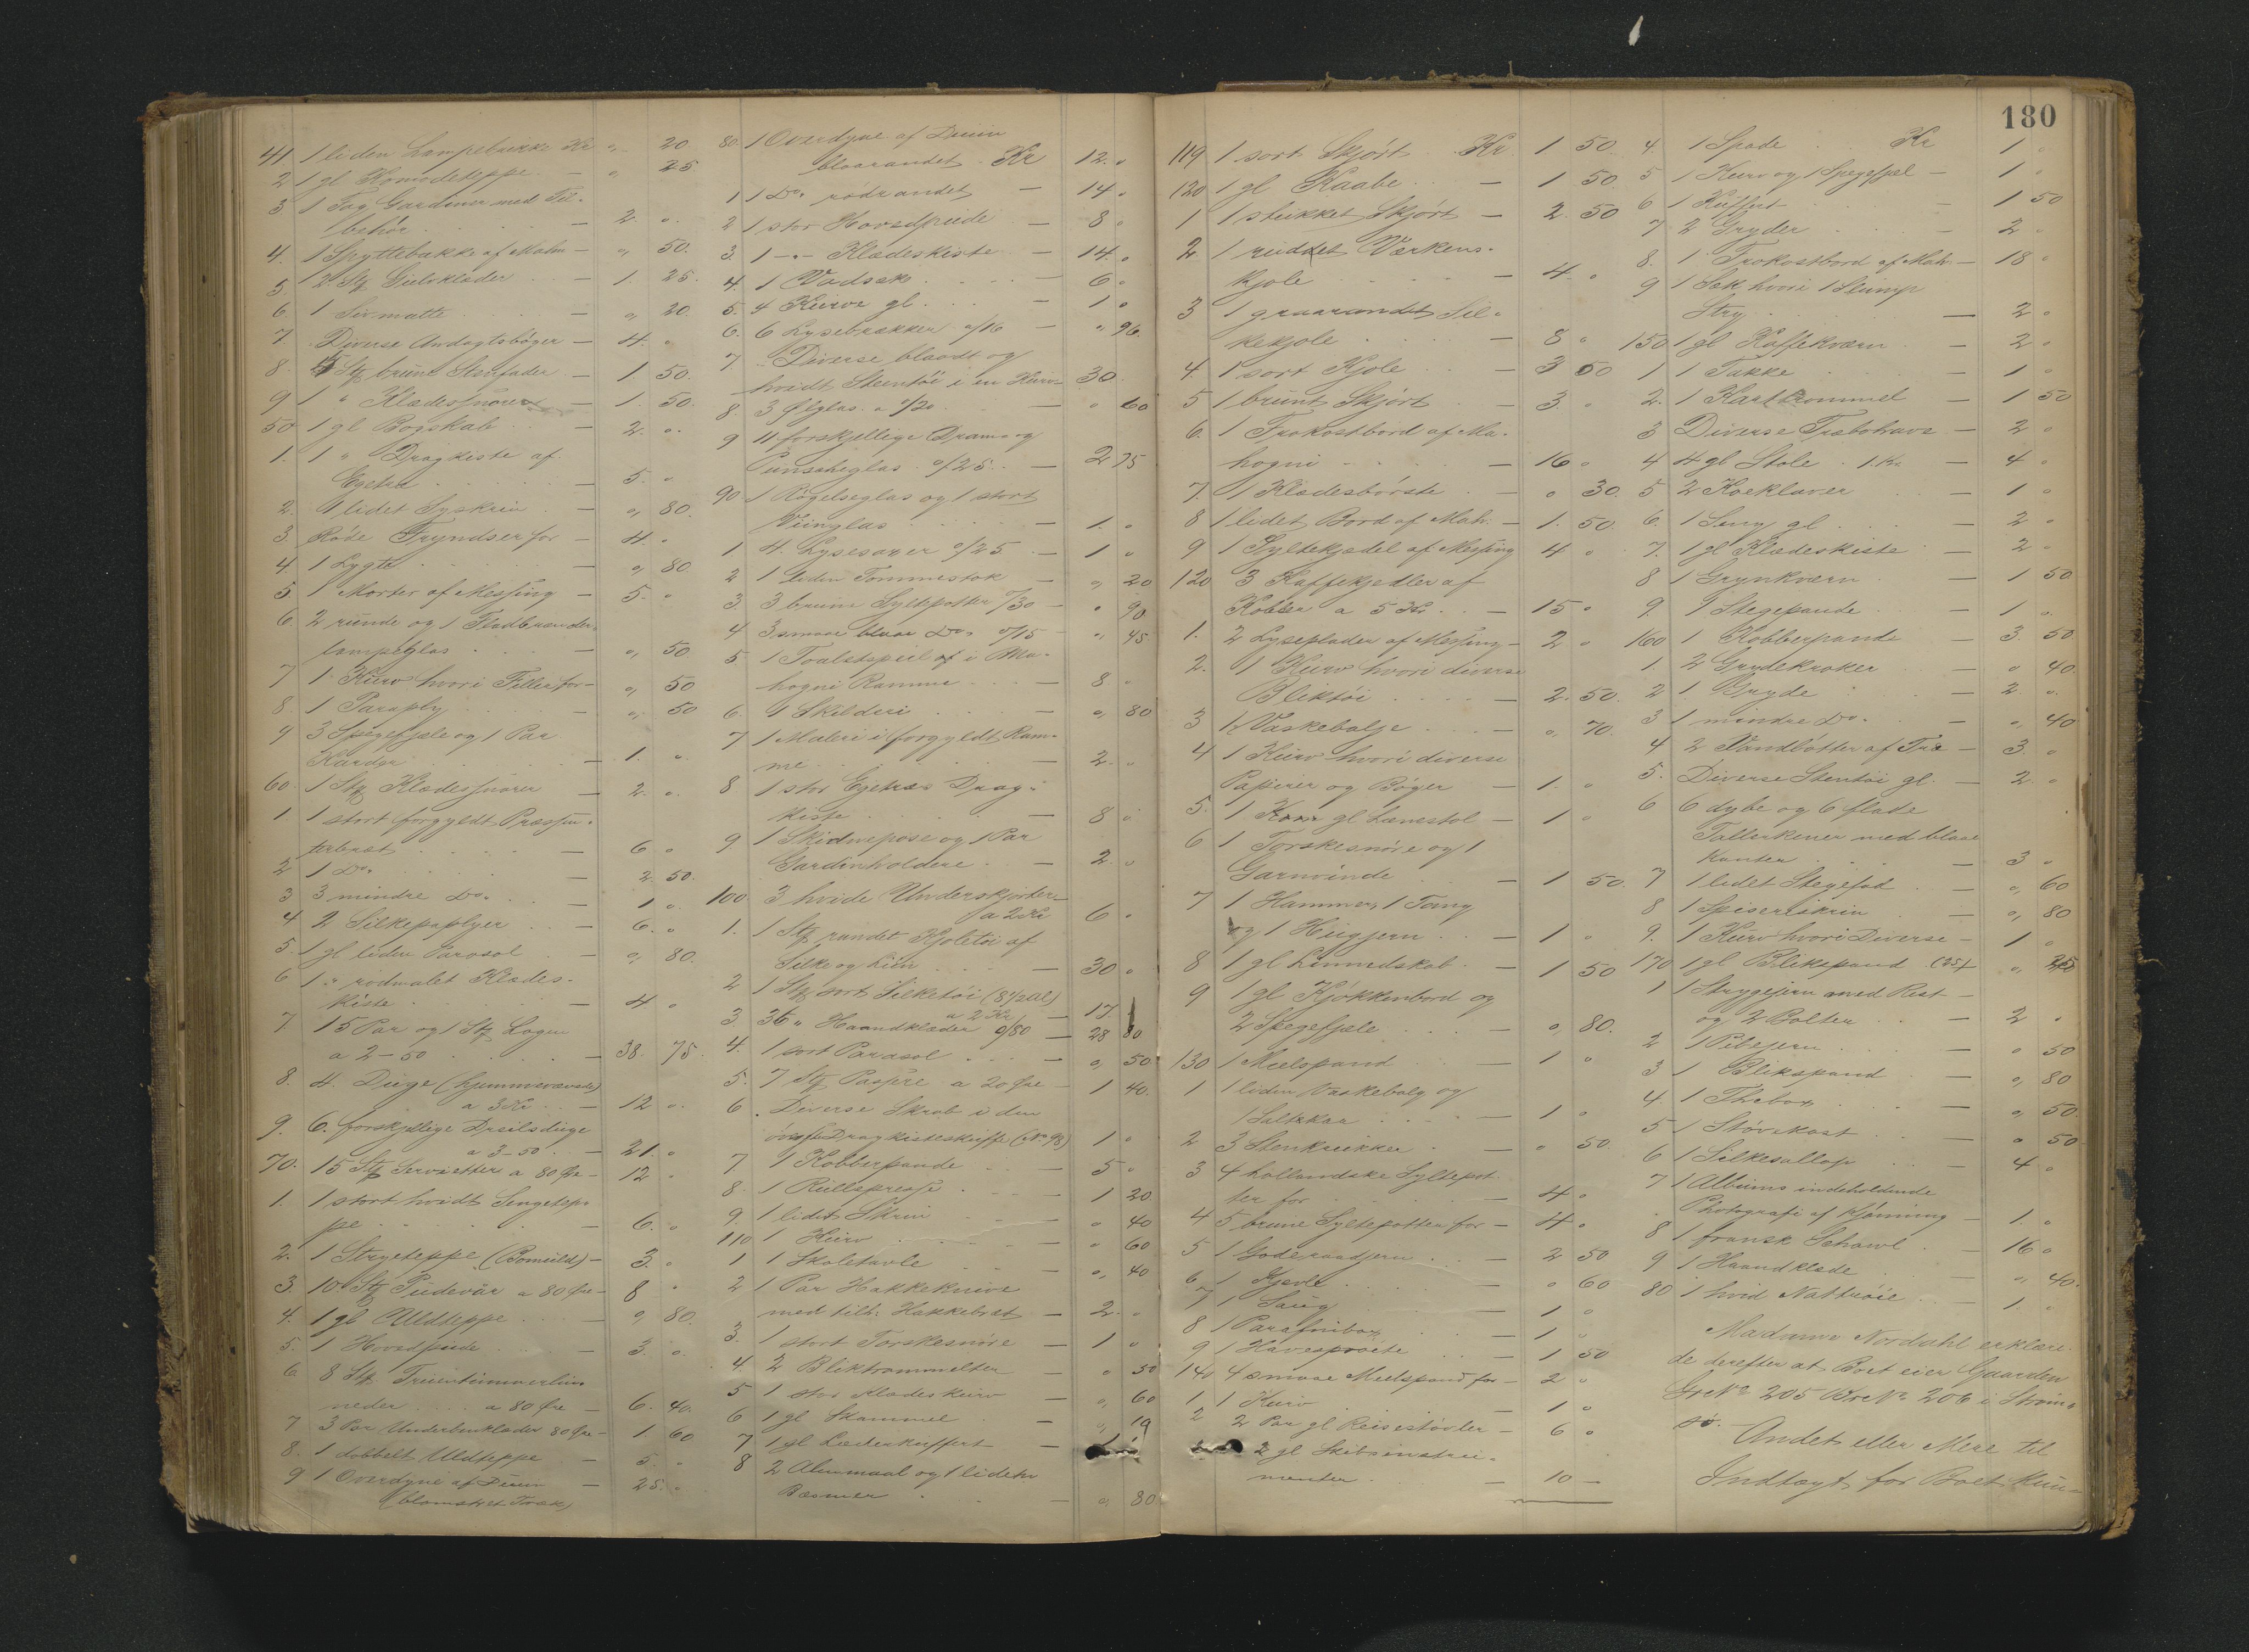 41. 1 liden Lampebrikke Kr „ 20
2 1 gl Komodeteppe — „ 25
3 1 Fag Gardiner med Til-
behør — 2. „
4. 1 Spyttebakke af Malm — „ 50.
5 2 Stk Gulvklæder — 1. 25.
6. 1 Sivmatte — „ 20.
7. Diverse Andagtsbøger — 4. „
8. 5 Stk brune Stenfader — 1 50.
9 1 " Klædessnorer — 1. 50.
50 1 gl Bogskab — 2. „
1. 1 " Dragkiste af
Egetræ — 5. „
2. 1 lidet Syskrin — „ 80.
3. Røde Fryndser for — 4. „
4 1 Lygte — „ 80.
5 1 Morter af Messing — 5. „
6 2 runde og 1 Fladbrænder-
lampeglas — „ 50
7 1 Kurv hvori Filler for — „ 50
8. 1 Paraply — „ 50
9 3 Spegefjæle og 1 Par
Karder — 1. „
60. 1 Stk Klædessnorer — 2. „
1 1 stort forgyldt Præssen-
terbræt — 6 „
2 1 Do. — 2. 50.
3 3 mindre Do. — 1 „
4 2 Silkepaplyer — 6. „
5 1 gl liden Parasol — „ 80.
6 1 " rødmalet Klædes-
kiste — 4 „
7 15 Par og 1 Stk Lagen
a 2-50 — 38. 75.
8. 4. Duge (hjemmevævede)
a 3 Kr — 12 „
9. 6. forskjellige Dreilsduge
a 3-50 — 21. „
70. 15 Stk Servietter a 80 Øre — 12 „
1. 1 stort hvidt Sengetep-
pe — 6. „
2. 1 Stryeteppe (Bomuld) — 3. „
3. 10 Stk Pudevår a 80 Øre — 8 „
4. 1 gl Uldteppe — „ 80.
5. 1 Hovedpude — 3. „
6 8 Stk Fruentimmerlin-
neder a 80 Øre — 6. 40.
7 3 Par Underbenklæder 80 Øre — 1. 60
8. 1 dobbelt Uldteppe — 5. „
9 1 Overdyne af Duun — 25. „
(blomstret Træk)
80. 1 Overdyne af Duun
blaarandet Kr 12. „
1 1 Do. rødrandet — 14 „
2 1 stor Hovedpude — 8 „
3. 1 -"- Klædeskiste — 14. „
4. 1 Vadsæk — 6 „
5. 4 Kurve gl. — 1 „
6. 6 Lysebrækker a/16 — „ 96.
7 Diverse blaadt og
hvidt Steentøi i en Kurv — 30.
8. 3 Ølglas a/20 — „ 60
9 11 forskjellige Drams og
Punscheglas a/25 — 2 75
90 1 Røgelseglas og 1 stort
Viinglas — 1. „
1 4. Lysesaxer a/25 — 1 „
2 1 liden Tommestok — „ 20
3. 3 brune Syltepotter a/30 — „ 90
4 3 smaae blaae Do. a/15 — „ 45
5. 1 Toaletspeil i Ma-
hogni Ramme — 8 „
6. 1 Skilderi — „ 80
7 1 Maleri i forgyldt Ram-
me — 2. „
8 1 stor Egetræs Drag-
kiste — 8 „
9 1 Skidnepose og 1 Par
Gardinholdere — 2. „
100 3 hvide Underskjorter
a 2 Kr 6 „
1. 1 Stk randet Kjoletøi af
Silke og Liin — 30 „
2 1 Stk sort Silketøi (8 1/2 Al)
a 2 Kr — 17.
3 36 " Haandklæder a/80 — 28 80
4. 1 sort Parasol — „ 50
5. 7 Stk Paspre a 20 Øre — 1 40.
6. Diverse Skrab i den
øverste Dragkisteskuffe (No 98) 1 „
7 1 Kobberpande — 5 „
8. 1 Rullepresse — 1 20
9. 1 lidet Skrin — „ 40
110 1 Kurv — „ 60
1 1 Skoletavle — „ 40
2 1 Par Hakkeknive
med tilh. Hakkebræt — 2. „
3. 1 stort Torskesnøre — 1 „
4 2 Bliktrommelter — „ 50
5 1 stor Klædeskurv — „ 60
6 1 gl Skammel — „ 19
7 1 gl Læderkuffert —
8 2 Alenmaal og 1 lidet
Bæsmer — „ 80
180
119 1 sort Skjørt Kr. 1 50.
120 1 gl Kaabe — 1 50.
1 1 stukket Skjørt — 2. 50
2 1 ruddet Værkens-
kjole — 4 „
3 1 graarandet Sil-
kekjole — 8 „
4. 1 sort Kjole — 3 50
5 1 brunt Skjørt — 3. „
6. 1 Frokostbord af Ma-
hogni — 16 „
7. 1 Klædesbørste — „ 30.
8 1 lidet Bord af Mah. — 1. 50.
9 1 Syltekjedel af Messing 4 „
120 3 Kaffekjedler af
Kobber a 5 Kr — 15 „
1. 2 Lyseplader af Messing — 2 „
2. 1 Kurv hvori diverse
Bliktøi — 2. 50.
3 1 Vaskebalje — „ 70.
4 1 Kurv hvori diverse
Papirer og Bøger — 1. „
5. 1 gl Lænestol — 1 „
6 1 Torskesnøre og 1
Garnvinde — 1 50.
7 1 Hammer, 1 Tang
og 1 Hugjern — 1 „
8 1 gl Linnedskab — 1 50
9 1 gl Kjøkkenbord og
2 Spegefjæle — „ 80.
130 1 Meelspand — 1 „
1 1 liden Vaskebalg og
1 Saltekar — 1 „
2 3 Stenkrukker — „ 50.
3 4 hollandske Syltepot-
ter for — 4 „
4 5 brune Syltepotter for — 4 „
5 1 Goderaadjern — 2 50
6 1 Kjævle — „ 60
7 1 Saug — 1 „
8 1 Parafinbox — 1 „
9 1 Havesprøite — 1 50
140 4 smaae Meelspand for — 2 „
1 1 Kurv — 1 „
2 2 Par gl Reisestøvler — 6 „
2 gl Skibsinstru-
menter — 10 —
4. 1 Spade Kr 1 „
5 1 Kurv og 1 Spegefjæl — 1 „
6 1 Kuffert — 1 50
7 2 Gryder — 2 „
8. 1 Frokostbord af Mah. — 18 „
9 1 Sæk hvori 1 Slump
Stry — 2 „
150 1 gl Kaffekværn — 2 „
1 1 Takke — 1 „
2. 1 Kartrommel — 1 50
3 Diverse Træbohave — 2 „
4 4 gl Stole 1. Kr — 4 „
5 2 Koeklaver — 1 „
6. 1 Seng gl — 2 „
7. 1 gl Klædeskiste — 2 „
8 1 Grynkværn — 1 50
9. 1 Stegepande — 1 „
160 1 Kobberpande — 3. 50
1. 2 Grydekroker — „ 40.
2 1 Gryde — 2 „
3 1 mindre Do. — „ 40
4 2 Vandbøtter af Træ — 3. „
5. Diverse Stentøi gl. — 2. „
6 6 dybe og 6 flade
Tallerkener med blaae
Kanter — 3 „
7 1 lidet Stegefad — „ 60
8 1 Spiseriskrin — „ 80
9. 1 Kurv hvori Diverse — 1 „
170 1 gl Blikspand (25) — „ 25
1 1 Strygejern med Rist
og 2 Bolter — 2 „
2 1 Pibejern — „ 50
3 1 Blikspand — „ 80
4 1 Thebox — „ 50.
5 1 Støvekost — „ 50
6 1 Silkesallop — 4 „
7 1 Albums indeholdende
Photografi af Kjønning — 1. „
8 1 fransk Schawl — 16 „
9 1 Haandklæde — „ 40.
80 1 hvid Nattrøie — 1. „
Madame Nordahl erklære-
de derefter at Boet eier Gaarden
GrNo. 205 BrNo. 206 i Strøms-
sø. Andet eller Mere til
Indtægt for Boet kun-